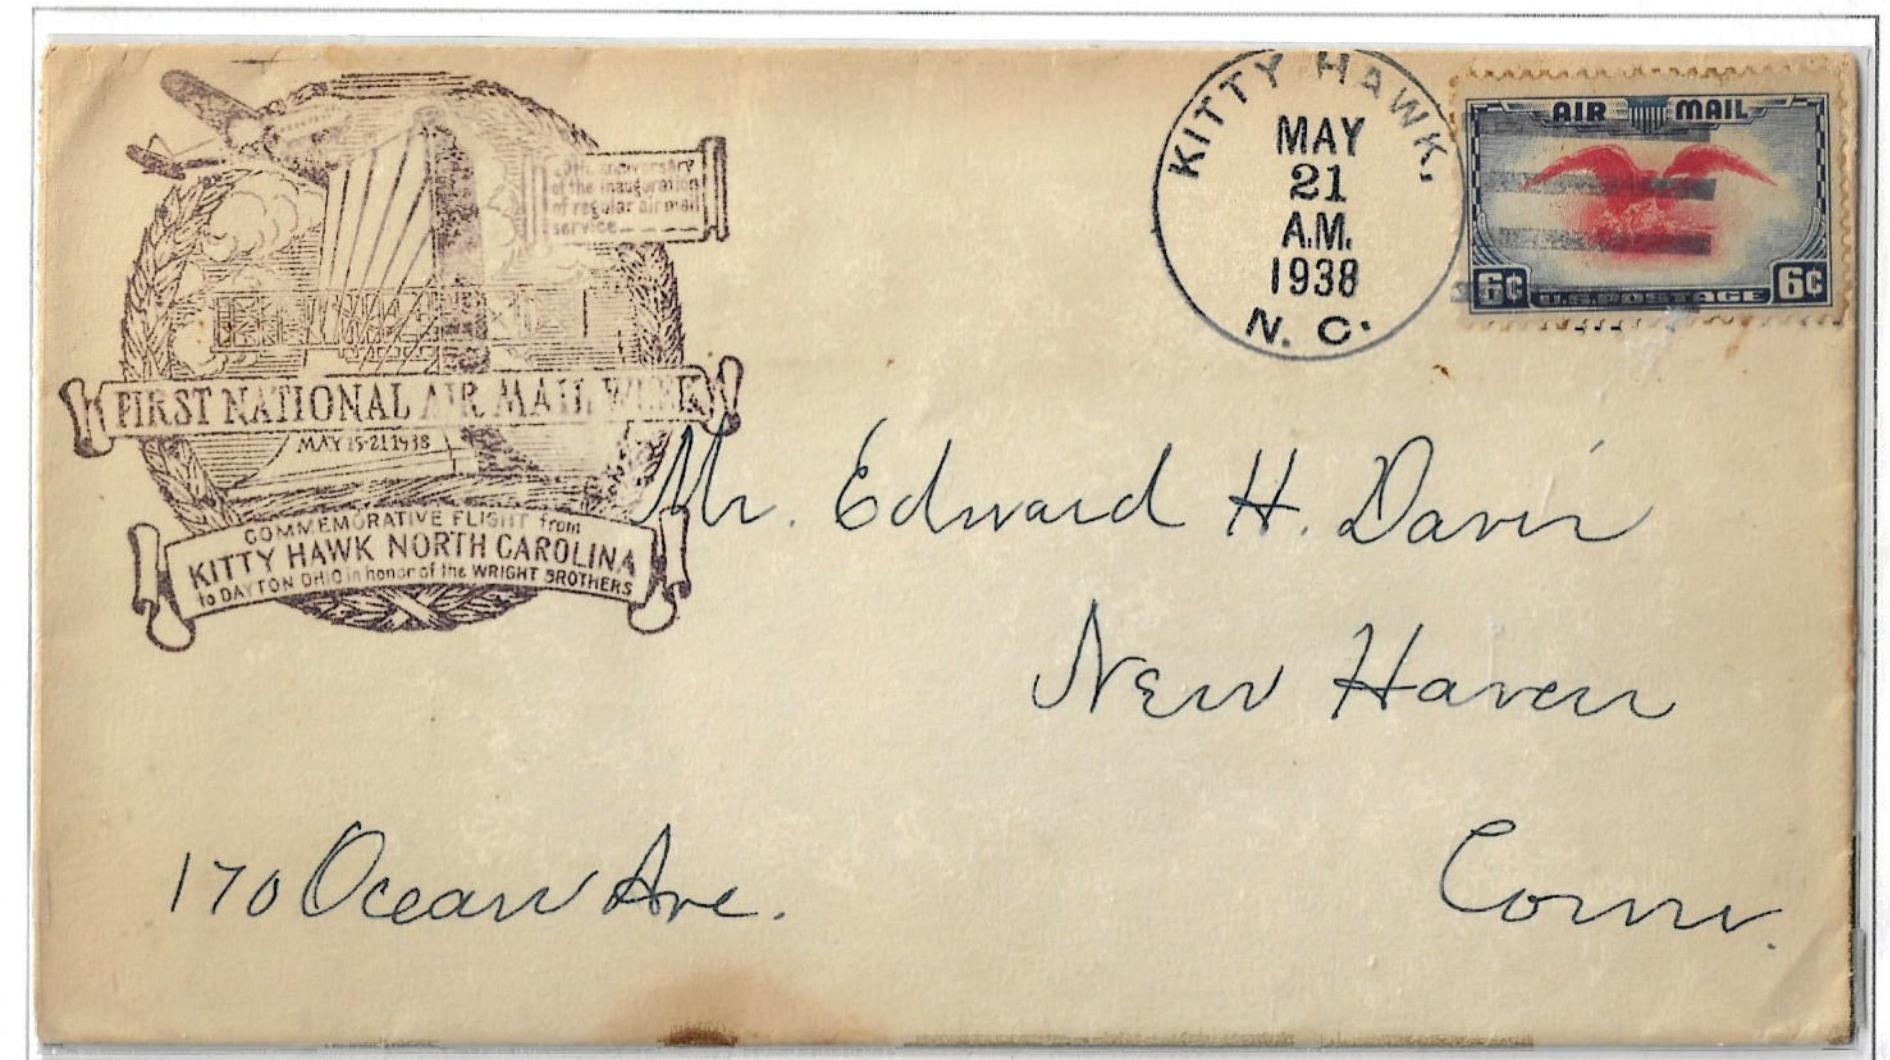 20th anniversary
of the inauguration
of regular air mail
service
FIRST NATIONAL AIR MAIL WEEK
MAY 15-21 1938
COMMEMORATIVE FLIGHT from
KITTY HAWK NORTH CAROLINA
to DAYTON OHIO in honor of the WRIGHT BROTHERS
KITTY HAWK,
MAY
21
A.M.
1938
N. C.
AIR MAIL
6¢ U.S. POSTAGE 6¢
Mr. Edward H. Davis
New Haven
170 Ocean Ave.
Conn.